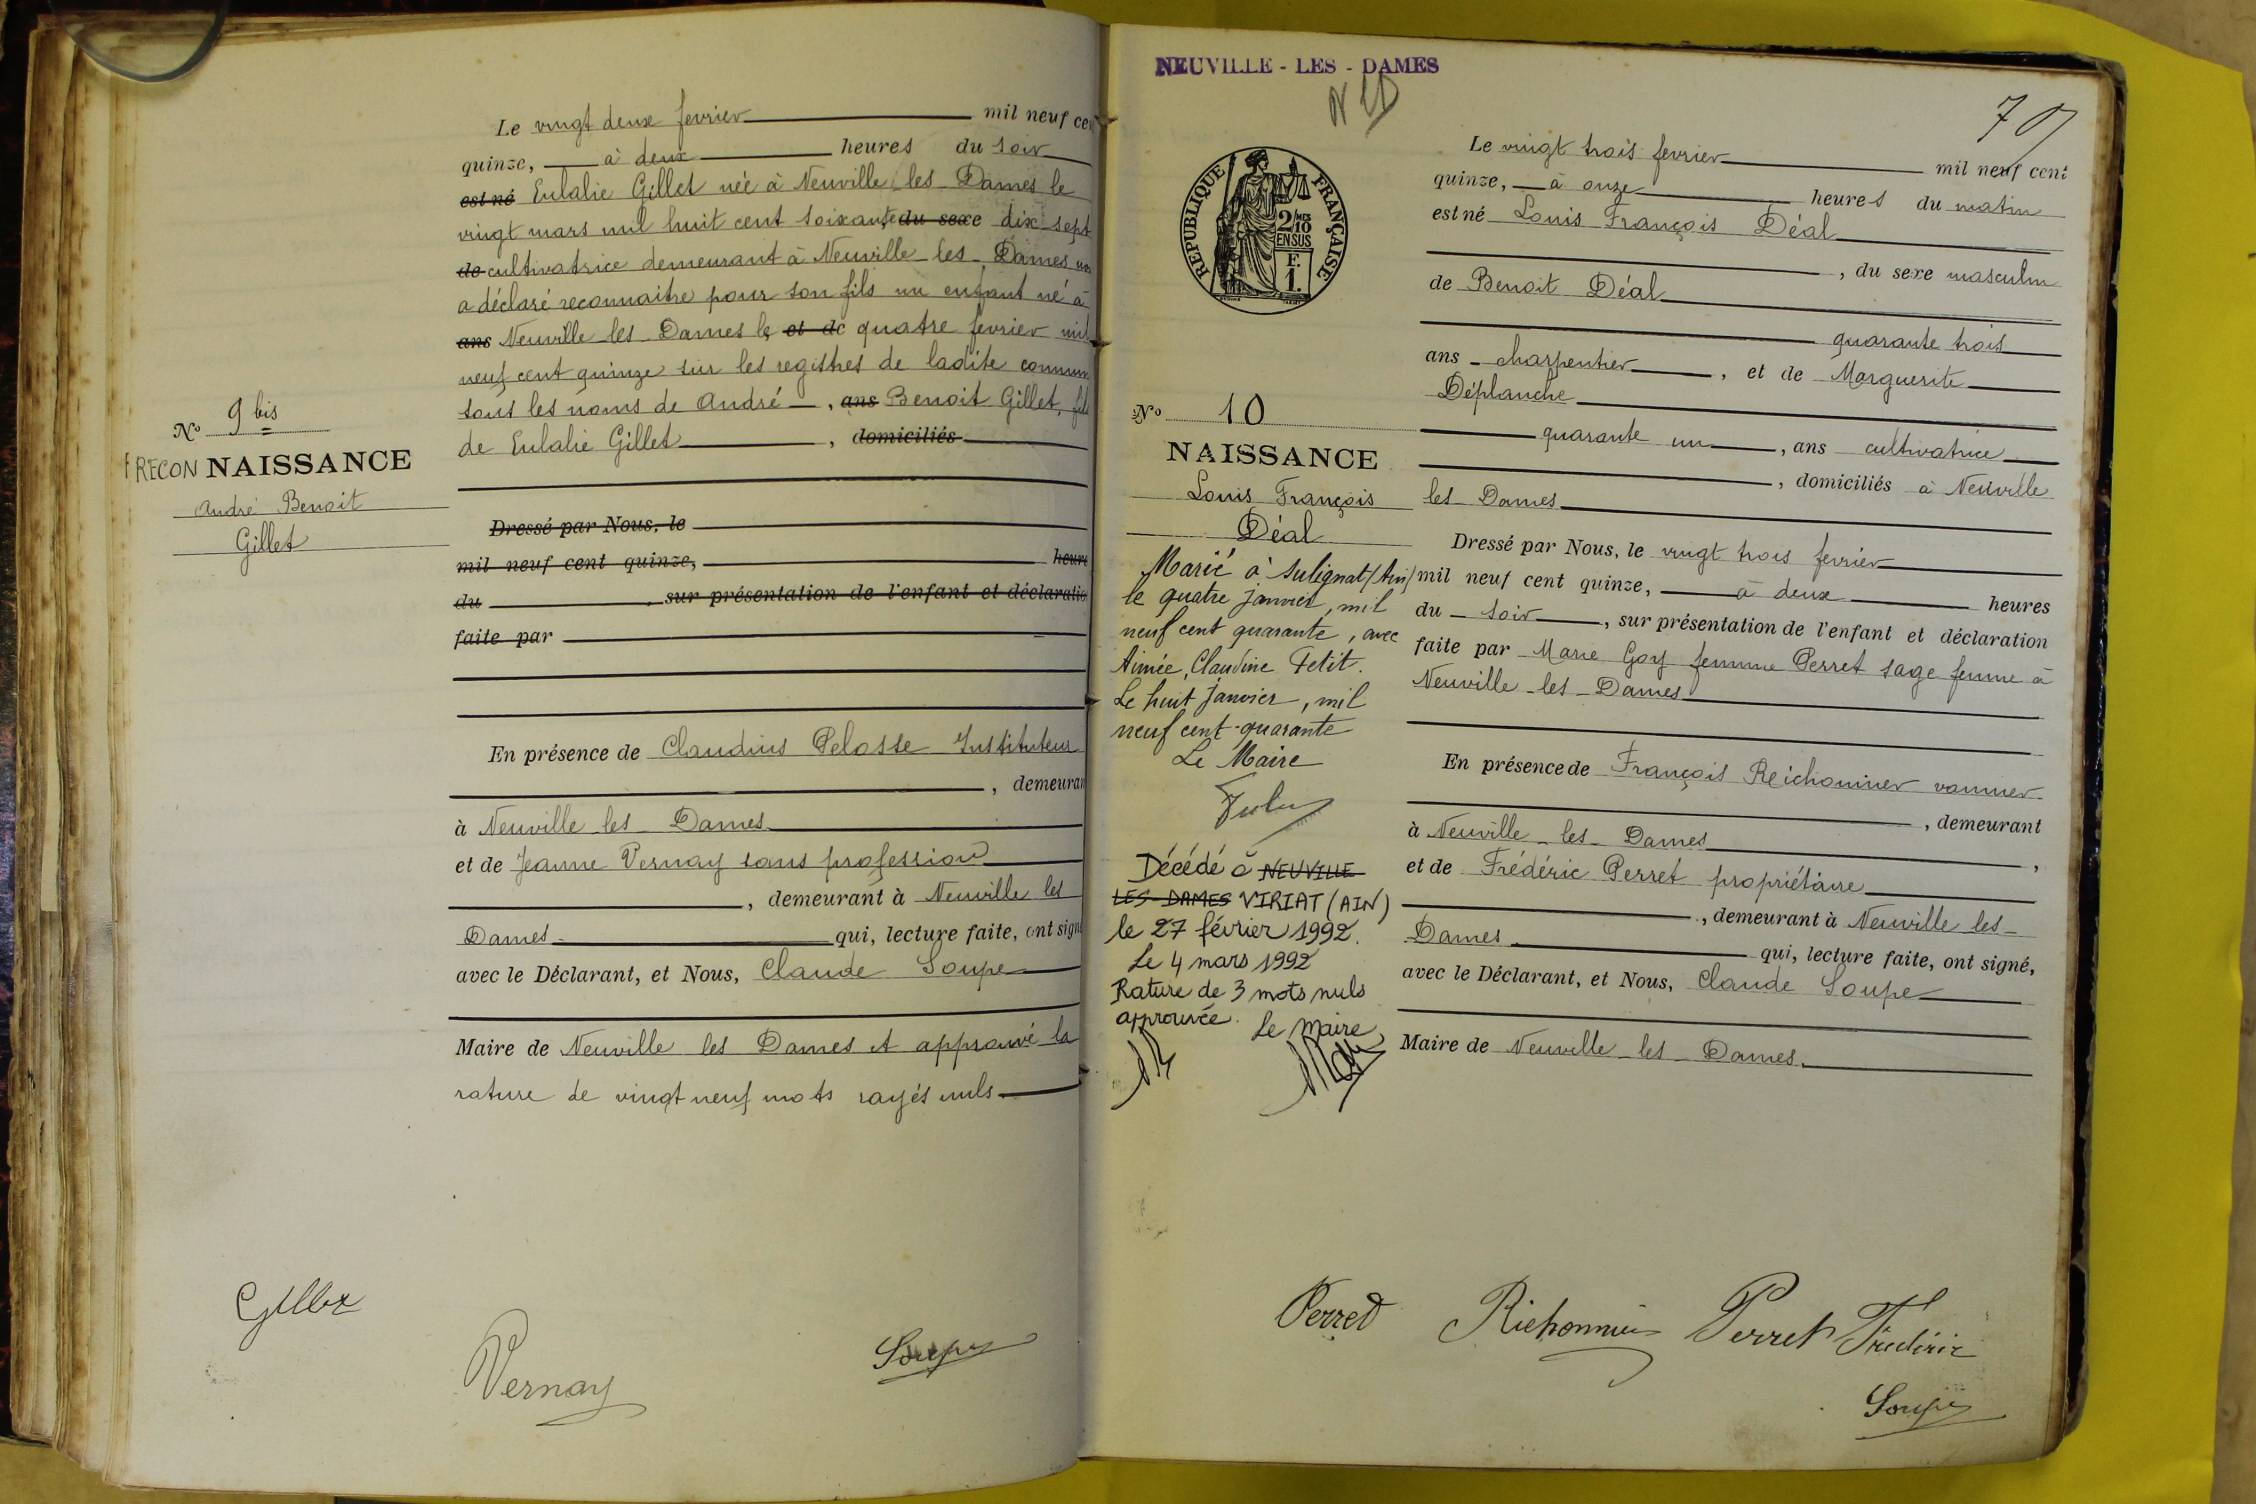 Nº 9 bis
RECONNAISSANCE
André Benoit
Gillet
Le vingt deux fevrier mil neuf cen
quinze, à deux heures du soir
est né Eulalie Gillet née à Neuville les Dames le
vingt mars mil huit cent soixante du sexe dix sept
de cultivatrice demeurant à Neuville les Dames
a déclaré reconnaitre pour son fils un enfant né à
ans Neuville les Dames le et de quatre fevrier mil
neuf cent quinze sur les registres de ladite commune
sous les noms de André, ans Benoit Gillet, fils
de Eulalie Gillet, domiciliés
Dressé par Nous, le
mil neuf cent quinze, heure
du , sur présentation de l'enfant et déclaratio
faite par
En présence de Claudius Pelosse Instituteur
, demeuran
à Neuville les Dames
et de Jeanne Vernay sans profession
, demeurant à Neuville les
Dames qui, lecture faite, ont signé
avec le Déclarant, et Nous, Claude Soupe
Maire de Neuville les Dames et approuvé la
rature de vingt neuf mots rayés nuls
Gillet
Vernay
Soupe
NEUVILLE - LES - DAMES
NLD
70
RÉPUBLIQUE FRANÇAISE
2/10
EN SUS
F.
1.
Nº 10
NAISSANCE
Louis François
Déal
Marié à Sulignat (Ain)
le quatre janvier, mil
neuf cent quarante, avec
Aimée, Claudine Petit.
Le huit janvier, mil
neuf cent quarante
Le Maire
Décédé à NEUVILLE
LES DAMES VIRIAT (AIN)
le 27 février 1992.
Le 4 mars 1992
Rature de 3 mots nuls
approuvée. Le maire
Le vingt trois fevrier mil neuf cent
quinze, à onze heures du matin
est né Louis François Déal
, du sexe masculin
de Benoit Déal
quarante trois
ans charpentier, et de Marguerite
Déplanche
quarante un, ans cultivatrice
, domiciliés à Neuville
les Dames
Dressé par Nous, le vingt trois fevrier
mil neuf cent quinze, à deux heures
du soir, sur présentation de l'enfant et déclaration
faite par Marie Goy femme Perret sage femme à
Neuville les Dames
En présence de François Reichonnier vannier
, demeurant
à Neuville les Dames,
et de Frédéric Perret propriétaire
, demeurant à Neuville les
Dames qui, lecture faite, ont signé,
avec le Déclarant, et Nous, Claude Soupe
Maire de Neuville les Dames.
Perret Richonnier Perret Frédéric
Soupe